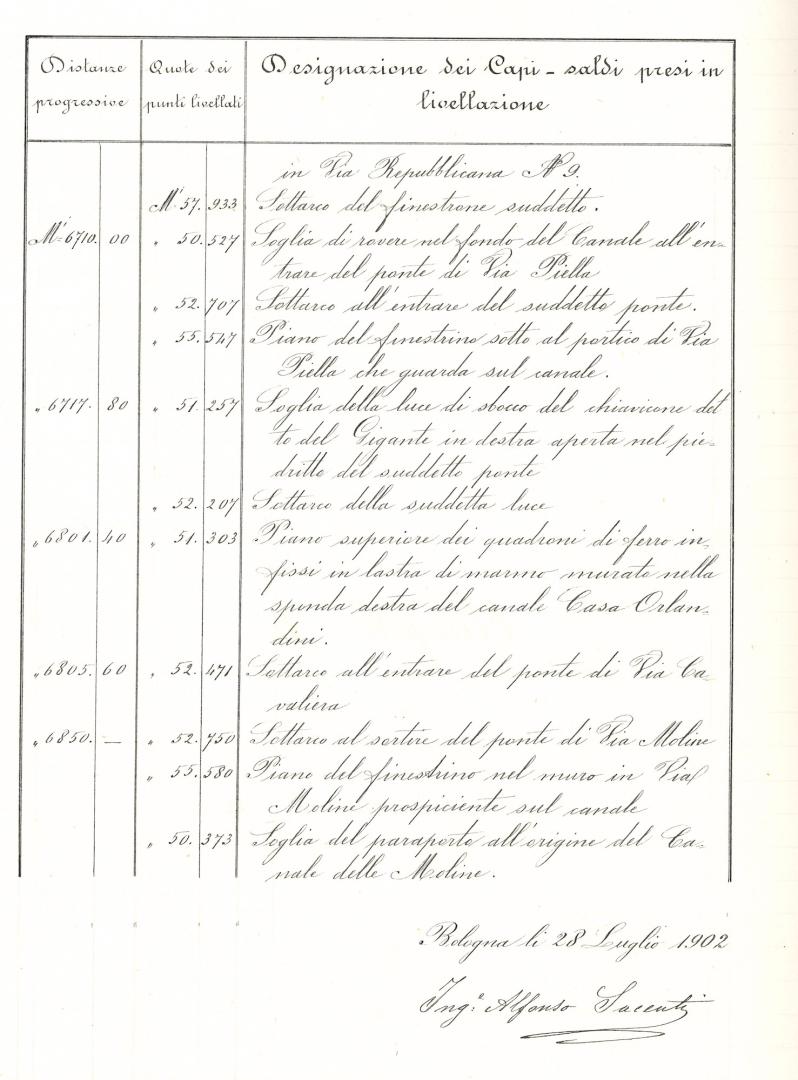 Distanze progressive | Quote dei punti livellati | Designazione dei Capi-saldi presi in livellazione
in Via Repubblicana N° 9.
M¹ 57. 933 Sottarco del finestrone suddetto.
M¹ 6710. 00 " 50. 527 Soglia di rovere nel fondo del Canale all'en-
trare del ponte di Via Piella
" 52. 707 Sottarco all'entrare del suddetto ponte.
" 55. 547 Piano del finestrino sotto al portico di Via
Piella che guarda sul canale.
" 6717. 80 " 51. 257 Soglia della luce di sbocco del chiavicone det
to del Gigante in destra aperta nel pie-
dritto del suddetto ponte
" 52. 207 Sottarco della suddetta luce
" 6801. 40 " 51. 303 Piano superiore dei quadroni di ferro in-
fissi in lastra di marmo murata nella
sponda destra del canale Casa Orlan-
dini.
" 6805. 60 " 52. 471 Sottarco all'entrare del ponte di Via Ca-
valiera
" 6850. — " 52. 750 Sottarco al sortire del ponte di Via Moline
" 55. 580 Piano del finestrino nel muro in Via
Moline prospiciente sul canale
" 50. 373 Soglia del paraporto all'origine del Ca-
nale delle Moline.
Bologna li 28 Luglio 1902
Ing.e Alfonso Saccenti